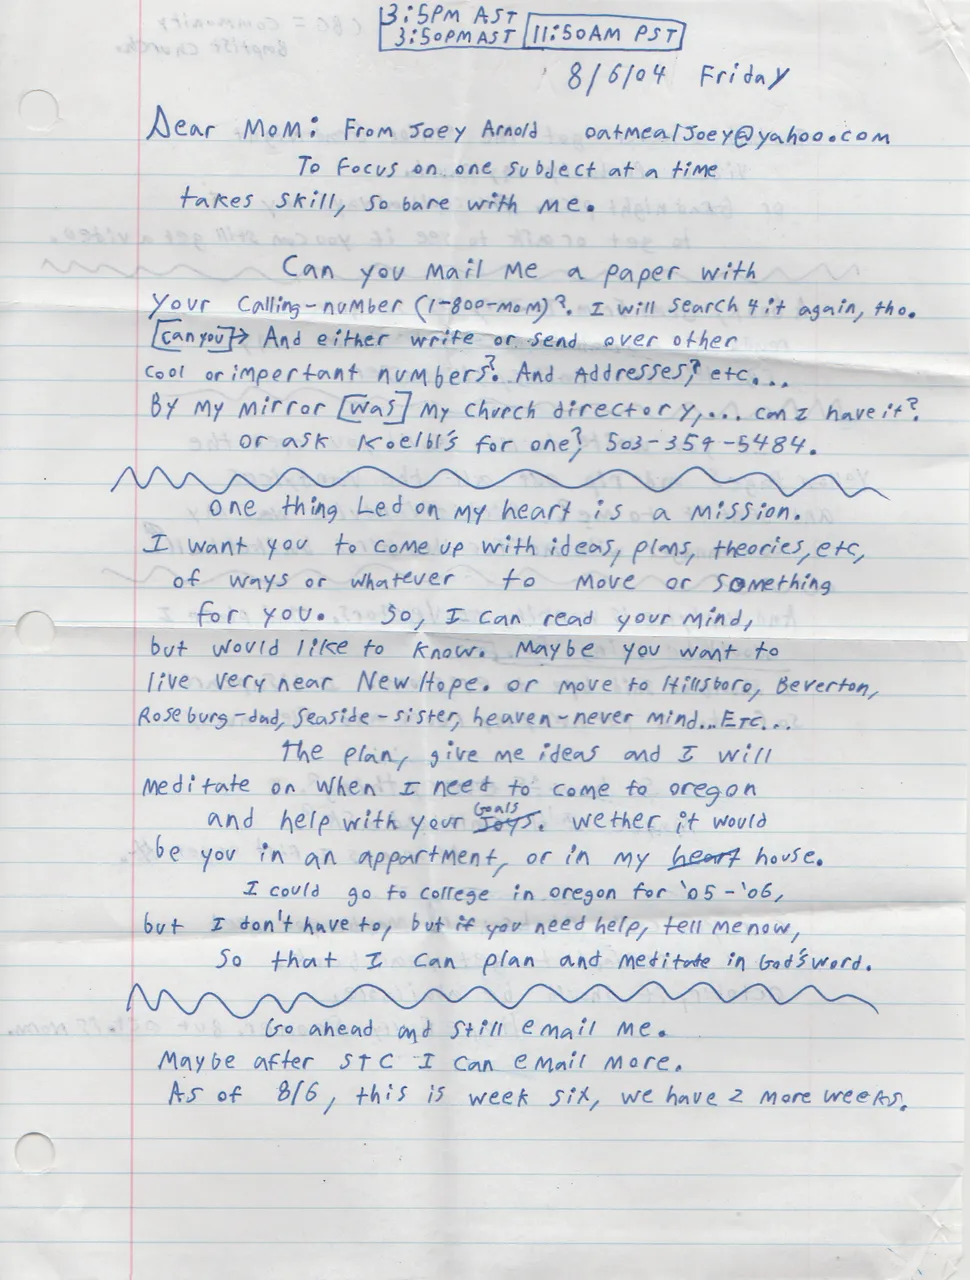 3:5PM AST
3:50PM AST 11:50AM PST
8/6/04 Friday
Dear Mom: From Joey Arnold oatmealJoey@yahoo.com
To focus on one subject at a time
takes skill, so bare with me.
Can you mail me a paper with
your calling-number (1-800-mom)? I will search 4 it again, tho.
[can you]→ And either write or send over other
cool or important numbers? And Addresses? etc...
By my mirror [was] my church directory,... can I have it?
Or ask Koelbl's for one? 503-359-5484.
One thing Led on my heart is a mission.
I want you to come up with ideas, plans, theories, etc,
of ways or whatever to move or something
for you. So, I can read your mind,
but would like to know. Maybe you want to
live very near New Hope. or move to Hillsboro, Beverton,
Roseburg-dad, Seaside-sister, heaven-never mind... Etc...
The plan, give me ideas and I will
meditate on when I need to come to oregon
and help with your Joys. Goals wether it would
be you in an appartment, or in my heart house.
I could go to college in oregon for '05-'06,
but I don't have to, but if you need help, tell me now,
So that I can plan and meditate in God's word.
Go ahead and still email me.
Maybe after STC I can email more.
As of 8/6, this is week six, we have 2 more weeks.